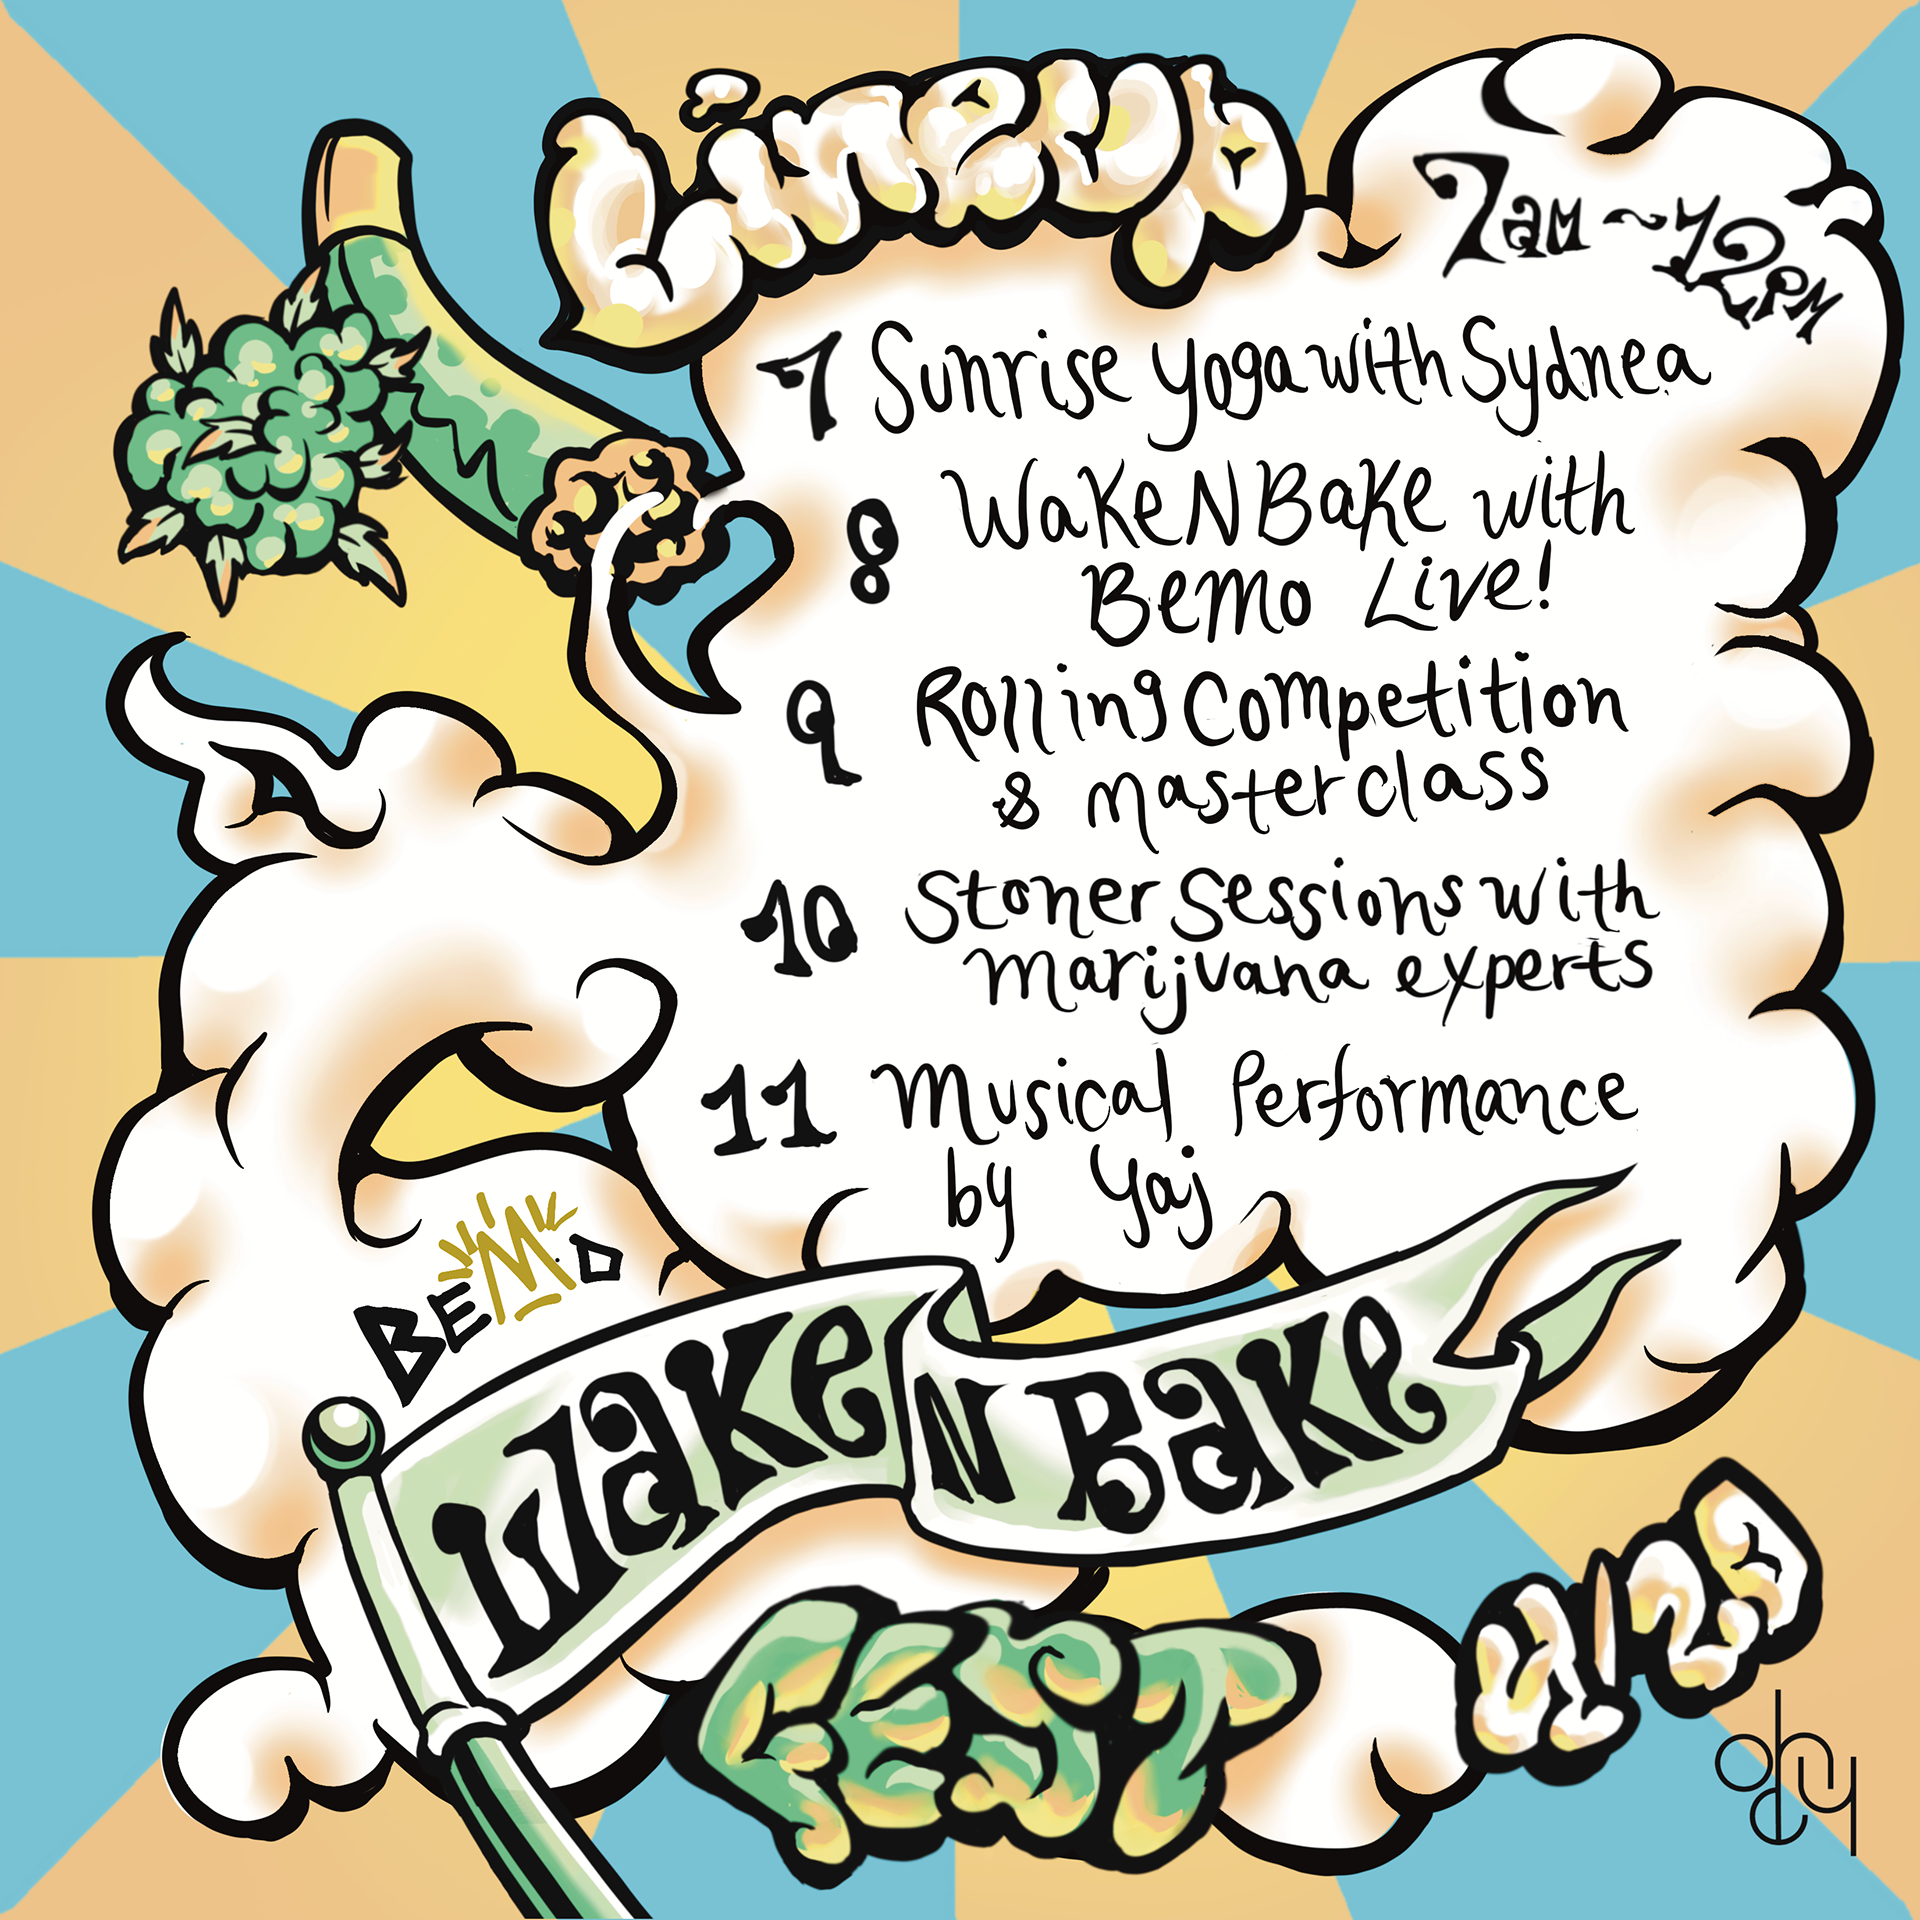 Lineup
7am ~ 12pm
7 Sunrise Yoga with Sydnea
8 Wake N Bake with
Bemo Live!
9 Rolling Competition
& masterclass
10 Stoner Sessions with
marijuana experts
11 Musical Performance
by Yaj
BEMO
Wake N Bake
FEST